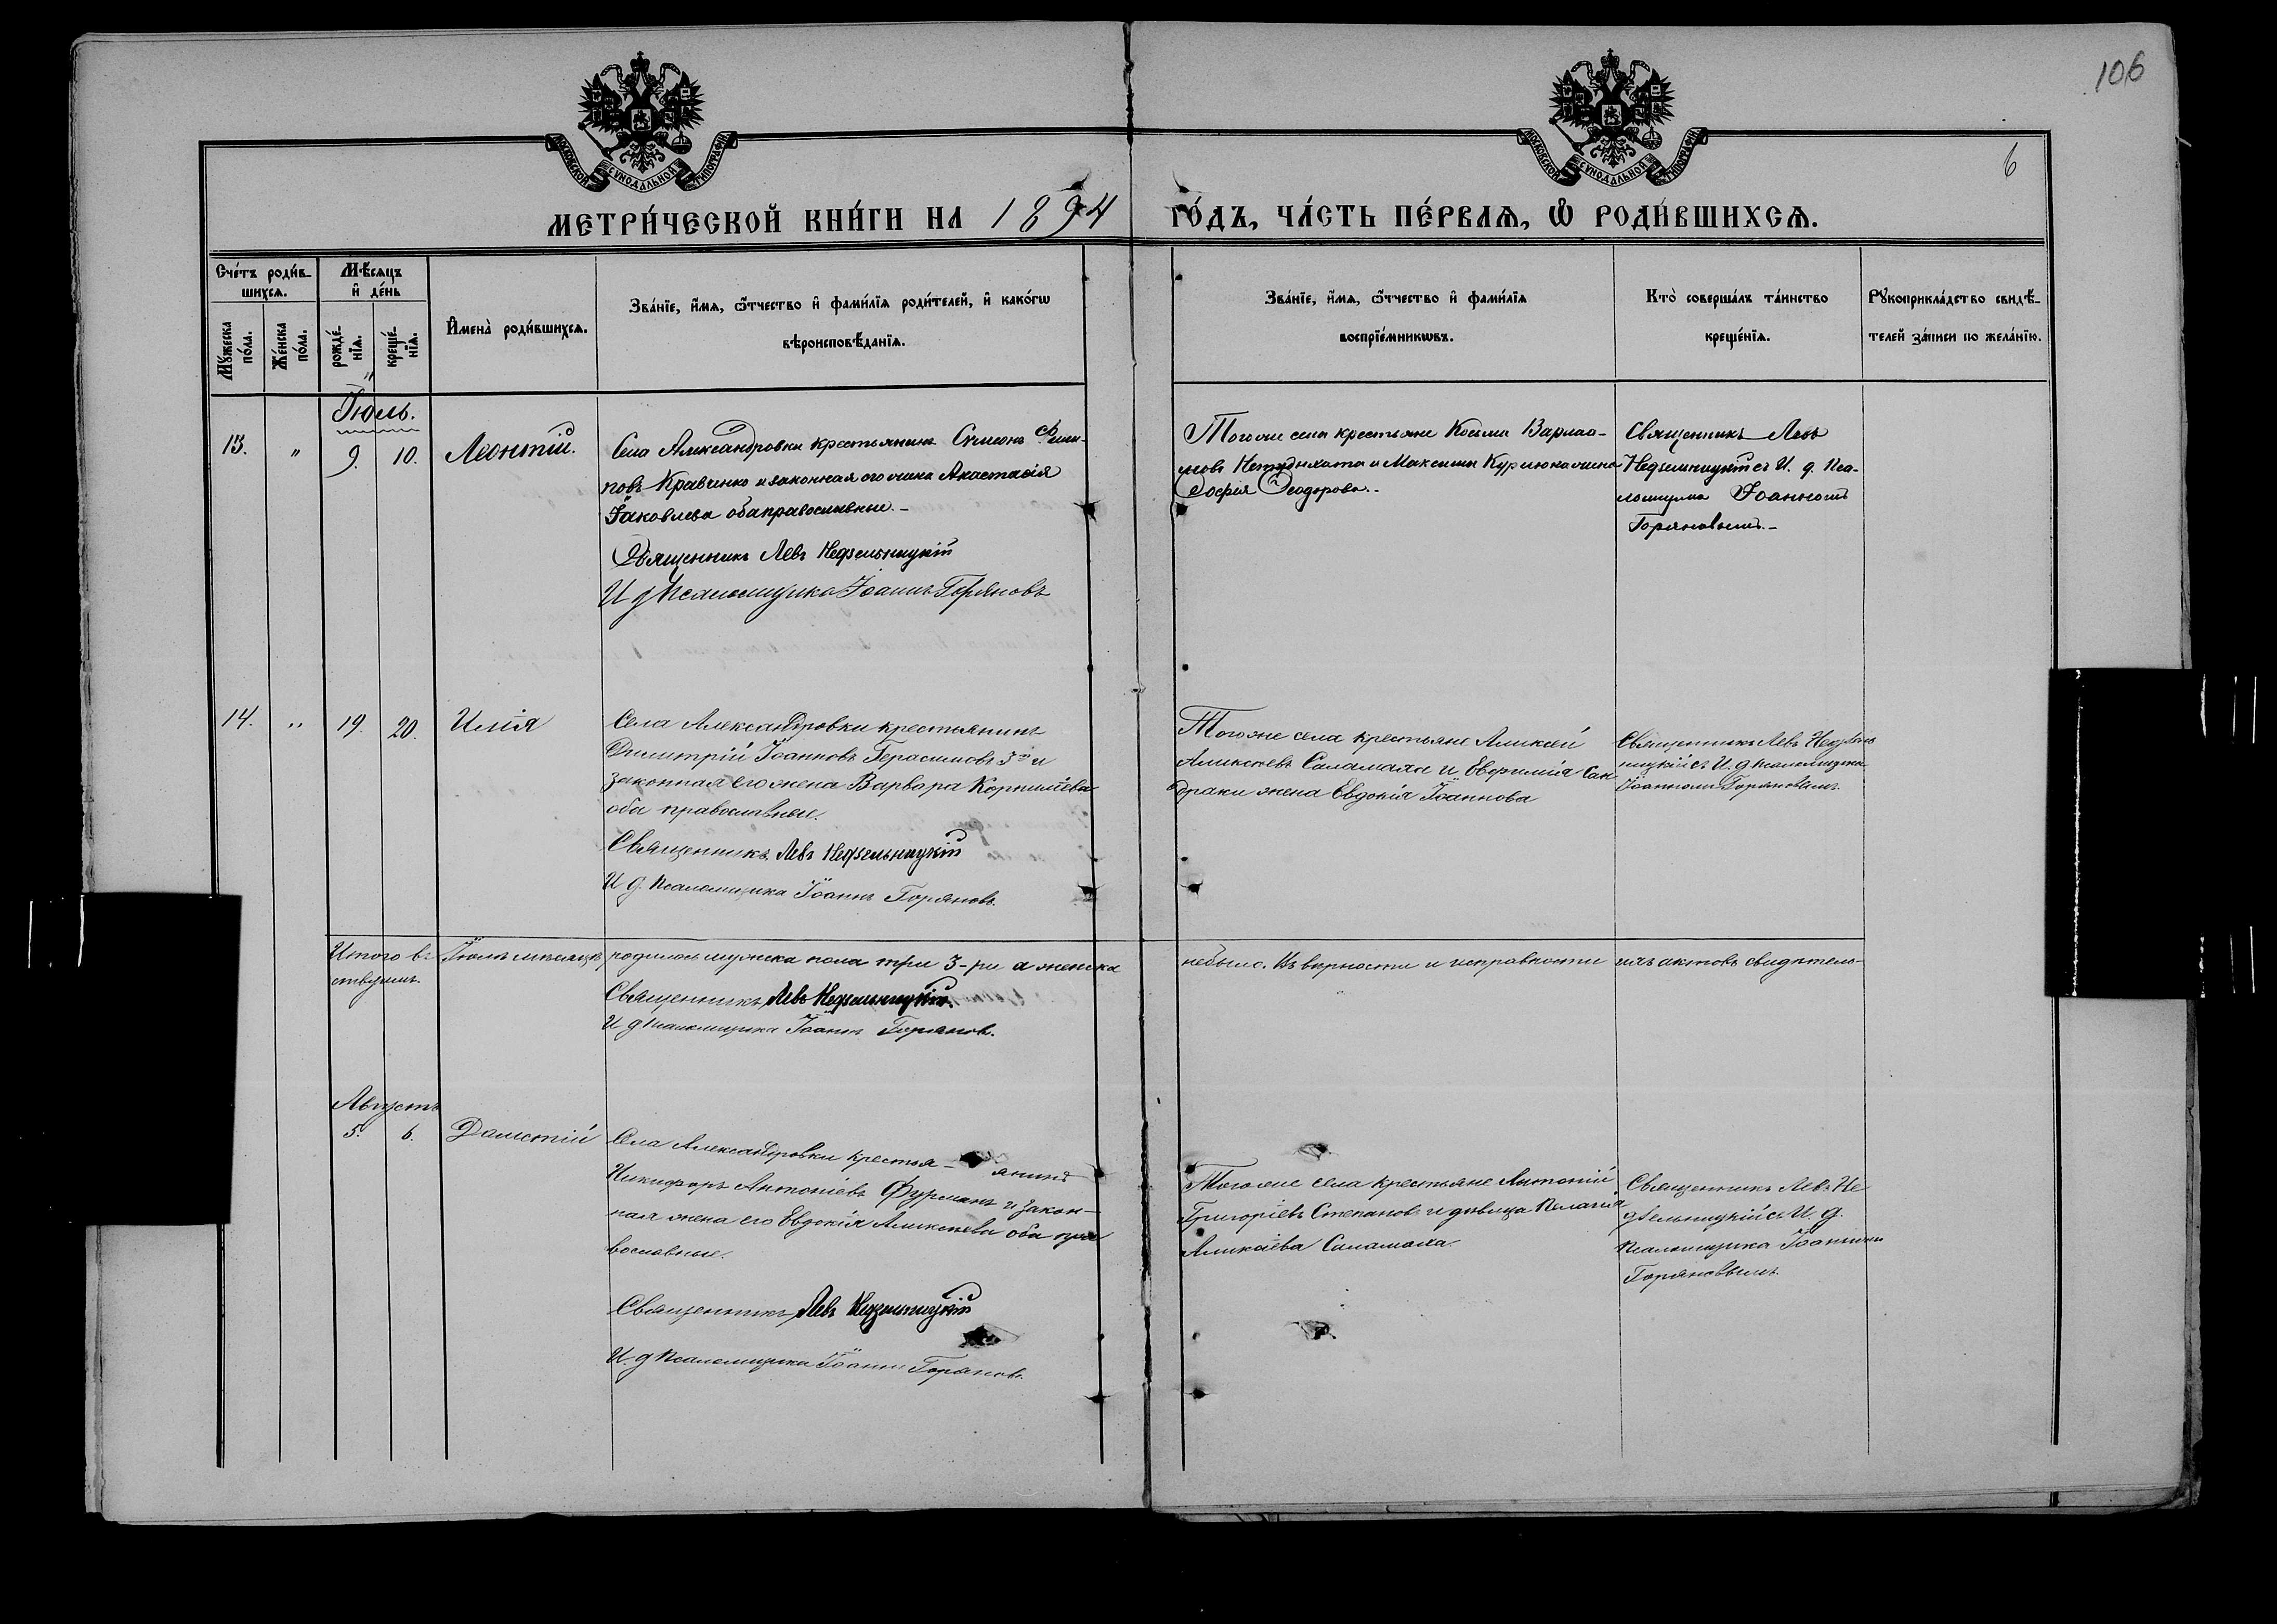 106
6
МОСКОВСКОЙ СУНОДАЛЬНОЙ ТИПОГРАФІИ
МОСКОВСКОЙ СУНОДАЛЬНОЙ ТИПОГРАФІИ
МЕТРИ́ЧЕСКОЙ КНИ́ГИ НА 1894 ГО́ДЪ, ЧА́СТЬ ПЕ́РВАѦ, Ѡ РОДИ́ВШИХСѦ.
Сче́тъ роди́в-
шихсѧ.
Мꙋ́жеска по́ла.
Же́нска по́ла.
Мѣ́сѧцъ и҆ де́нь
рожде́-нїѧ.
креще́-нїѧ.
И҆мена̀ роди́вшихсѧ.
Зва́нїе, и҆́мѧ, ѻ҆́тчество и҆ фами́лїѧ роди́телей, и҆ како́гѡ
вѣроисповѣ́данїѧ.
Зва́нїе, и҆́мѧ, ѻ҆́тчество и҆ фами́лїѧ
воспрїе́мникѡвъ.
Кто̀ соверша́лъ та́инство
креще́нїѧ.
Рꙋкоприкла́дство свидѣ́-
телей за́писи по жела́нїю.
Іюль.
13. " 9. 10. Леонтій.
Села Александровки крестьянинъ Симеонъ Фили-
повъ Кравченко и законная его жена Анастасія
Іаковлева оба православные.-
Священникъ Левъ Недзельницкій
И д Псаломщика Іоаннъ Горяновъ
Тогоже села крестьяне Косьма Варлаа-
мовъ и Максима жена
Софія Ѳеодорова.-
Священникъ Левъ
Недзельницкій съ И. д. Пса-
ломщика Іоанномъ
Горяновымъ.-
14. " 19. 20. Илія
Села Александровки крестьянинъ
Димитрій Іоанновъ Герасимовъ 3й и
законная его жена Варвара Корниліева
оба православные.
Священникъ Левъ Недзельницкій
И д. Псаломщика Іоаннъ Горяновъ.
Тогоже села крестьяне Алексей
Алексѣевъ Саламаха и Евфимія Сан
драки жена Евдокія Іоаннова
Священникъ Левъ Недзель
ницкій съ И. д псаломщика
Іоанномъ Горяновымъ.
Итого въ Іюлѣ мѣсяцѣ родилось мужска пола три 3-ри а женска небыло. Въ вѣрности и исправности сихъ актовъ свидѣтель-
ствуемъ.
Священникъ Левъ Недзельницкій.
И д псаломщика Іоаннъ Горяновъ.
Августъ
5. 6. Дометій
Села Александровки крестья- янинъ
Никифоръ Антоніевъ Фурманъ и закон-
ная жена его Евдокія Алексѣева оба пра
вославные.
Священникъ Левъ Недзельницкій
И. д Псаломщика Іоаннъ Горяновъ.
Тогоже села крестьяне Антоній
Григоріевъ Степановъ и дѣвица Пелагія
Алексѣева Саламаха.
Священникъ Левъ Не
дзельницкій съ И. д.
Псаломщика Іоанномъ
Горяновымъ.